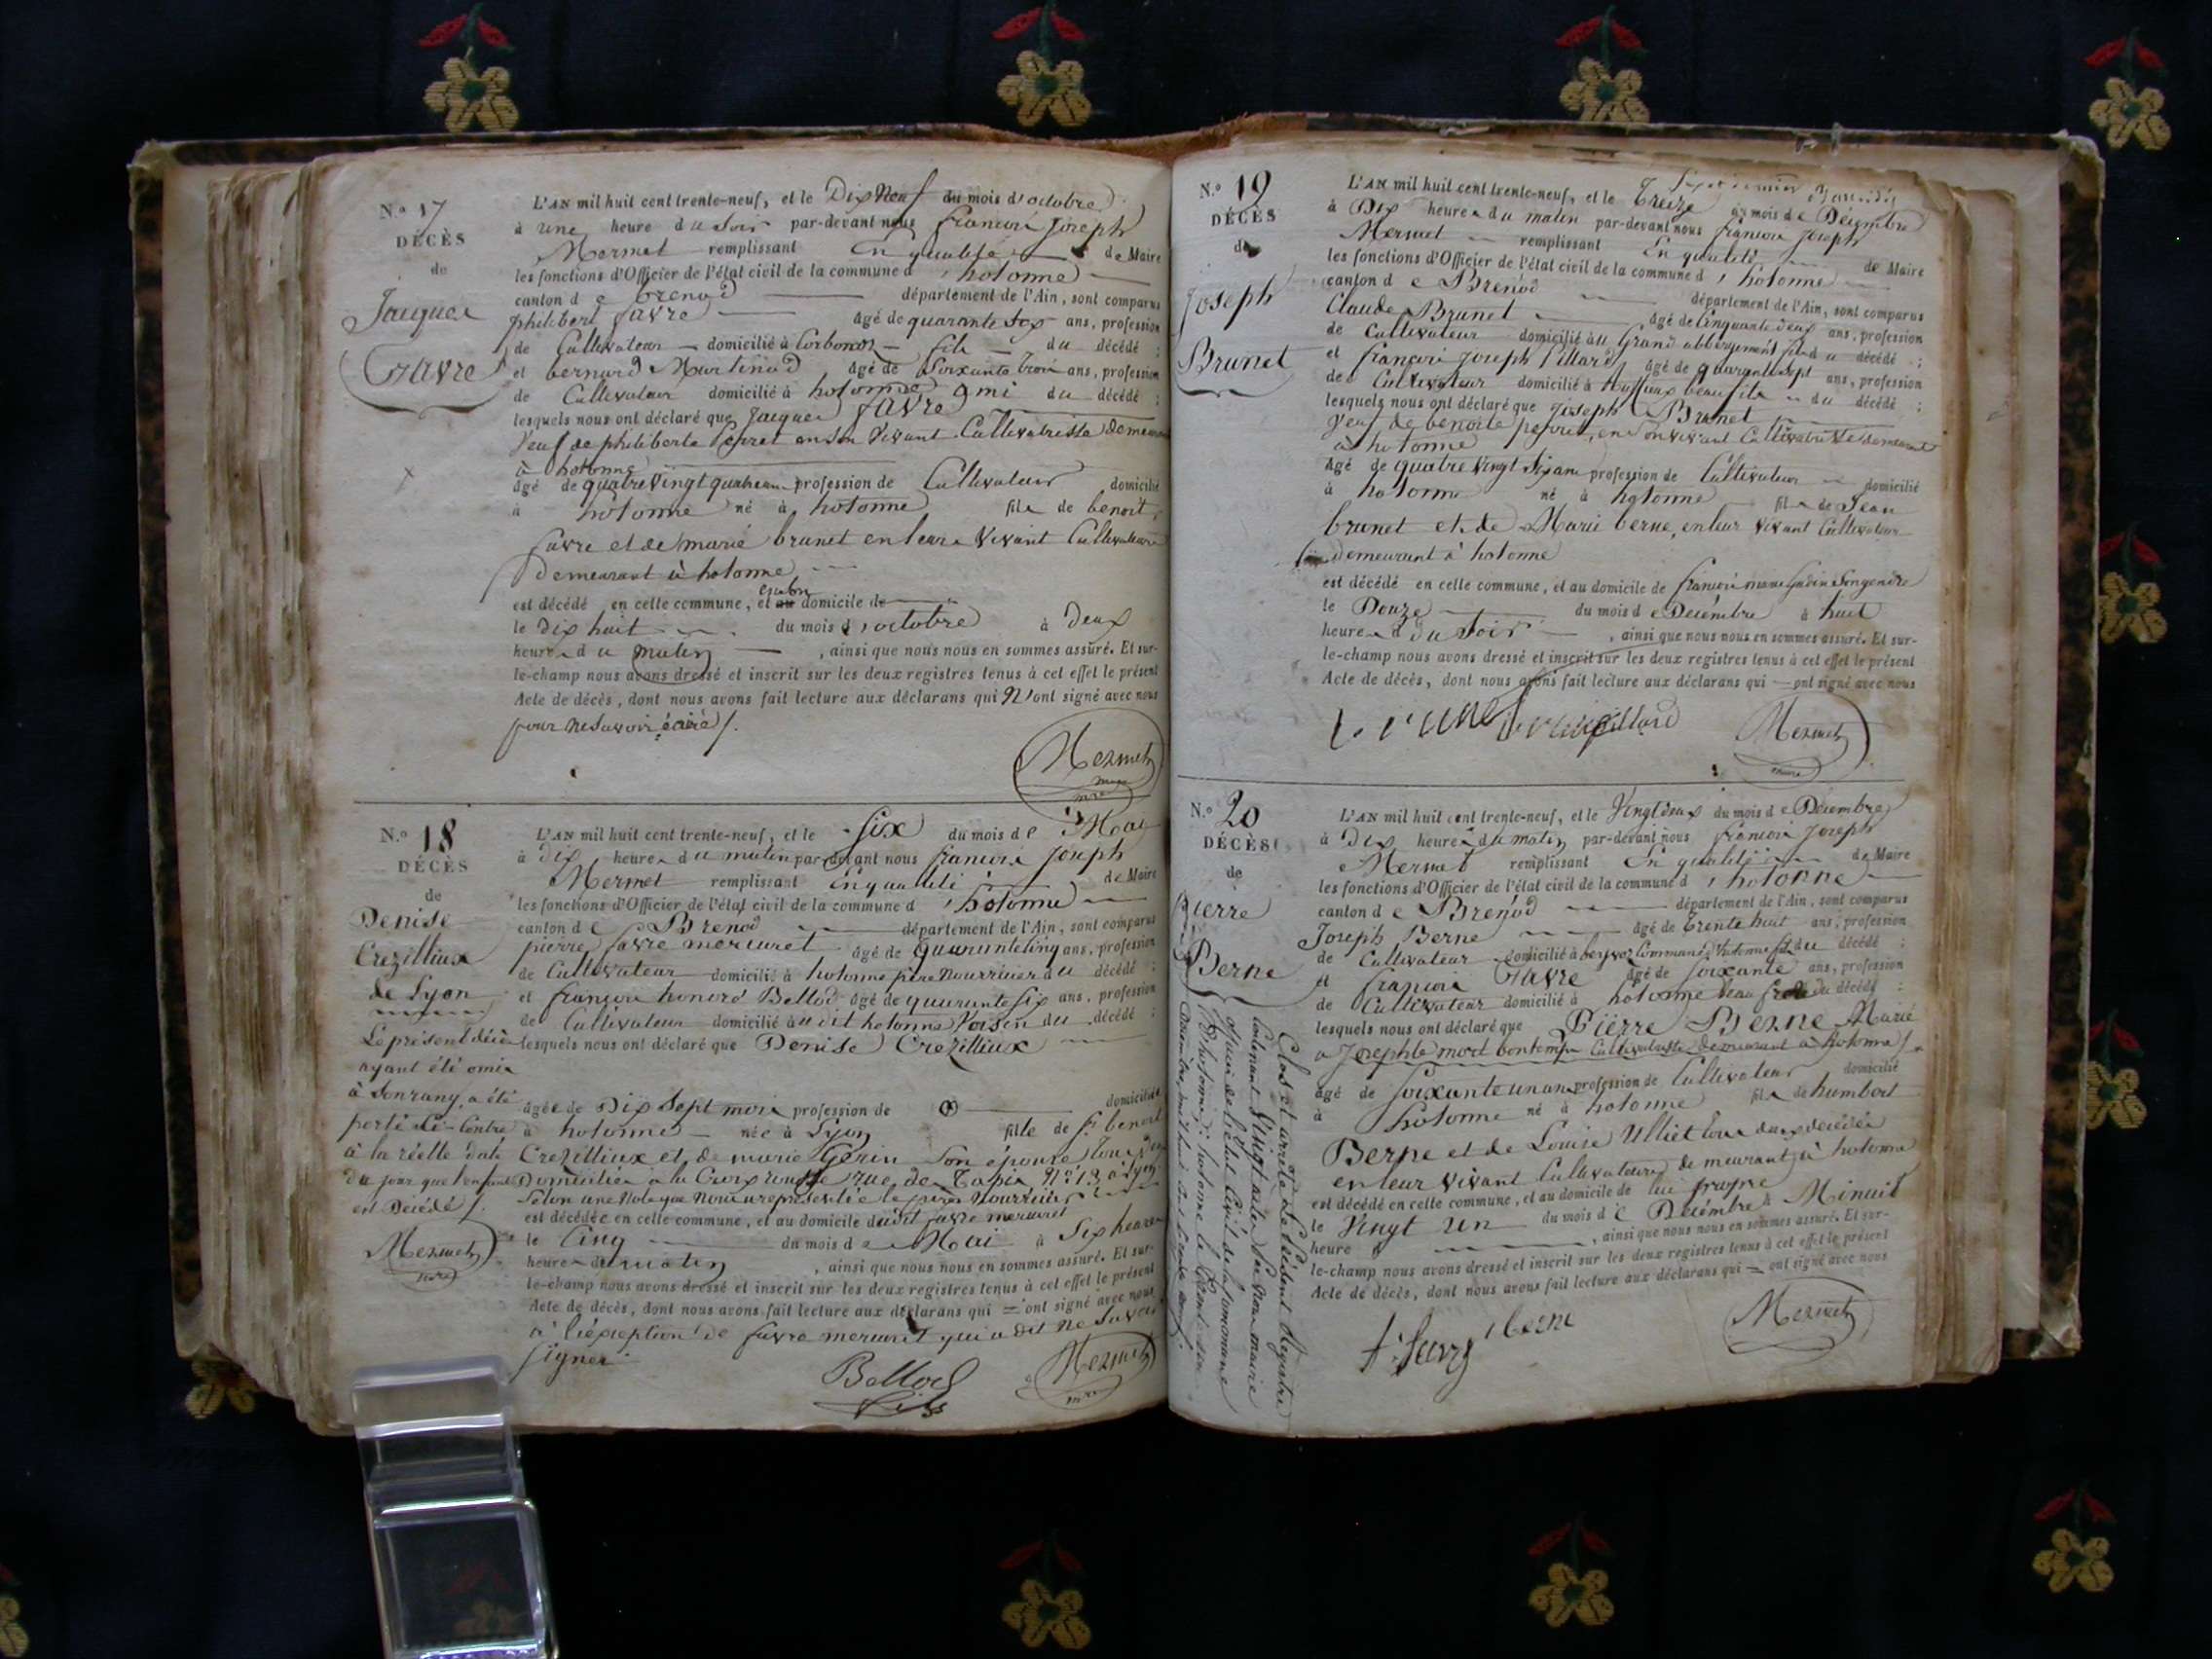 N.º 17
DÉCÈS
de
Jacques
Favre
L'AN mil huit cent trente-neuf, et le Dix Neuf du mois d'octobre
à une heure du soir par-devant nous françois Joseph
Mermet remplissant En qualité de Maire
les fonctions d'Officier de l'état civil de la commune d'hotonne
canton de brenod département de l'Ain, sont comparus
philibert favre âgé de quarante six ans, profession
de Cultivateur domicilié à Corbonod fils du décédé ;
et bernard Martinod âgé de Soixante trois ans, profession
de Cultivateur domicilié à hotonne ami du décédé ;
lesquels nous ont déclaré que Jacques favre
Veuf de philiberte en son Vivant Cultivatrice demeurant
à hotonne
âgé de quatre Vingt quatre ans profession de Cultivateur domicilié
à hotonne né à hotonne fils de benoit
favre et de marie brunet en leurs Vivant Cultivateurs
Demeurant à hotonne
est décédé en cette commune, et au domicile de
le dix huit du mois d'octobre à Deux
heures du matin , ainsi que nous nous en sommes assuré. Et sur-
le-champ nous avons dressé et inscrit sur les deux registres tenus à cet effet le présent
Acte de décès, dont nous avons fait lecture aux déclarans qui N'ont signé avec nous
pour ne savoir écrire /.
Mermet
maire
N.º 18
DÉCÈS
de
Denise
Crezilliux
de Lyon
Le présent décès
ayant été omis
à Son rang, a été
porté Ci-Contre
à la réelle date
du jour que l'enfant
est Décédé /.
Mermet
L'AN mil huit cent trente-neuf, et le Six du mois de Mai
à dix heures du matin par-devant nous françois Joseph
Mermet remplissant En qualité de Maire
les fonctions d'Officier de l'état civil de la commune d'hotonne
canton de Brenod département de l'Ain, sont comparus
pierre favre mercuret âgé de quarante cinq ans, profession
de Cultivateur domicilié à hotonne père Nourricier du décédé ;
et françois honoré Bellod âgé de quarante six ans, profession
de Cultivateur domicilié au dit hotonne Voisin du décédé ;
lesquels nous ont déclaré que Denise Crezilliux
âgée de Dix Sept mois profession de domiciliée
à hotonne née à Lyon fille de benoit
Crezilliux et de marie Gerin Son épouse
Domiciliés à la Croix rousse rue de Tapis N.º 13 à Lyon
Selon une Note que Nous a représentée le père Nourricier
est décédée en cette commune, et au domicile dudit favre mercuret
le Cinq du mois de Mai à Six heures
heures du matin , ainsi que nous nous en sommes assuré. Et sur-
le-champ nous avons dressé et inscrit sur les deux registres tenus à cet effet le présent
Acte de décès, dont nous avons fait lecture aux déclarans qui ont signé avec nous
à l'exception de favre mercuret qui a dit ne Savoir
Signer
Bellod
fils
Mermet
N.º 19
DÉCÈS
de
Joseph
Brunet
L'AN mil huit cent trente-neuf, et le Treize du mois de Décembre
à Dix heures du matin par-devant nous françois Joseph
Mermet remplissant En qualité de Maire
les fonctions d'Officier de l'état civil de la commune d'hotonne
canton de Brenod département de l'Ain, sont comparus
Claude Brunet âgé de Cinquante deux ans, profession
de Cultivateur domicilié au Grand abbergement fils du décédé ;
et françois Joseph pillard âgé de quarante sept ans, profession
de Cultivateur domicilié à beau fils du décédé ;
lesquels nous ont déclaré que Joseph Brunet
Veuf de benoite en Son vivant Cultivatrice demeurant
à hotonne
âgé de quatre Vingt Six ans profession de Cultivateur domicilié
à hotonne né à hotonne fils de Jean
brunet et de Marie berne, en leur vivant Cultivateurs
demeurant à hotonne
est décédé en cette commune, et au domicile de françois marie Son gendre
le Douze du mois de Décembre à huit
heures du Soir , ainsi que nous nous en sommes assuré. Et sur-
le-champ nous avons dressé et inscrit sur les deux registres tenus à cet effet le présent
Acte de décès, dont nous avons fait lecture aux déclarans qui ont signé avec nous
pillard
Mermet
maire
N.º 20
DÉCÈS
de
pierre
Berne
L'AN mil huit cent trente-neuf, et le Vingt deux du mois de Décembre
à Dix heures du matin par-devant nous françois Joseph
Mermet remplissant En qualité de Maire
les fonctions d'Officier de l'état civil de la commune d'hotonne
canton de Brenod département de l'Ain, sont comparus
Joseph Berne âgé de trente huit ans, profession
de Cultivateur domicilié à Commune d'hotonne fils du décédé ;
et françois Favre âgé de Soixante ans, profession
de Cultivateur domicilié à hotonne beau frère du décédé ;
lesquels nous ont déclaré que Pierre Berne Marié
a Josephte mort bontemps Cultivatrice demeurant à hotonne /.
âgé de Soixante un ans profession de Cultivateur domicilié
à hotonne né à hotonne fils de humbert
Berne et de Louise Ulliet tous deux décédés
en leur Vivant Cultivateurs demeurant à hotonne
est décédé en cette commune, et au domicile de lui propre
le Vingt un du mois de Décembre à Minuit
heure , ainsi que nous nous en sommes assuré. Et sur-
le-champ nous avons dressé et inscrit sur les deux registres tenus à cet effet le présent
Acte de décès, dont nous avons fait lecture aux déclarans qui ont signé avec nous
f. favre berne
Mermet
Clos et arrêté le présent Registre
Contenant Vingt actes par Nous maire
officier de l'état Civil de la Commune
D'hotonne, à hotonne le
Décembre mil huit cent trente neuf /.